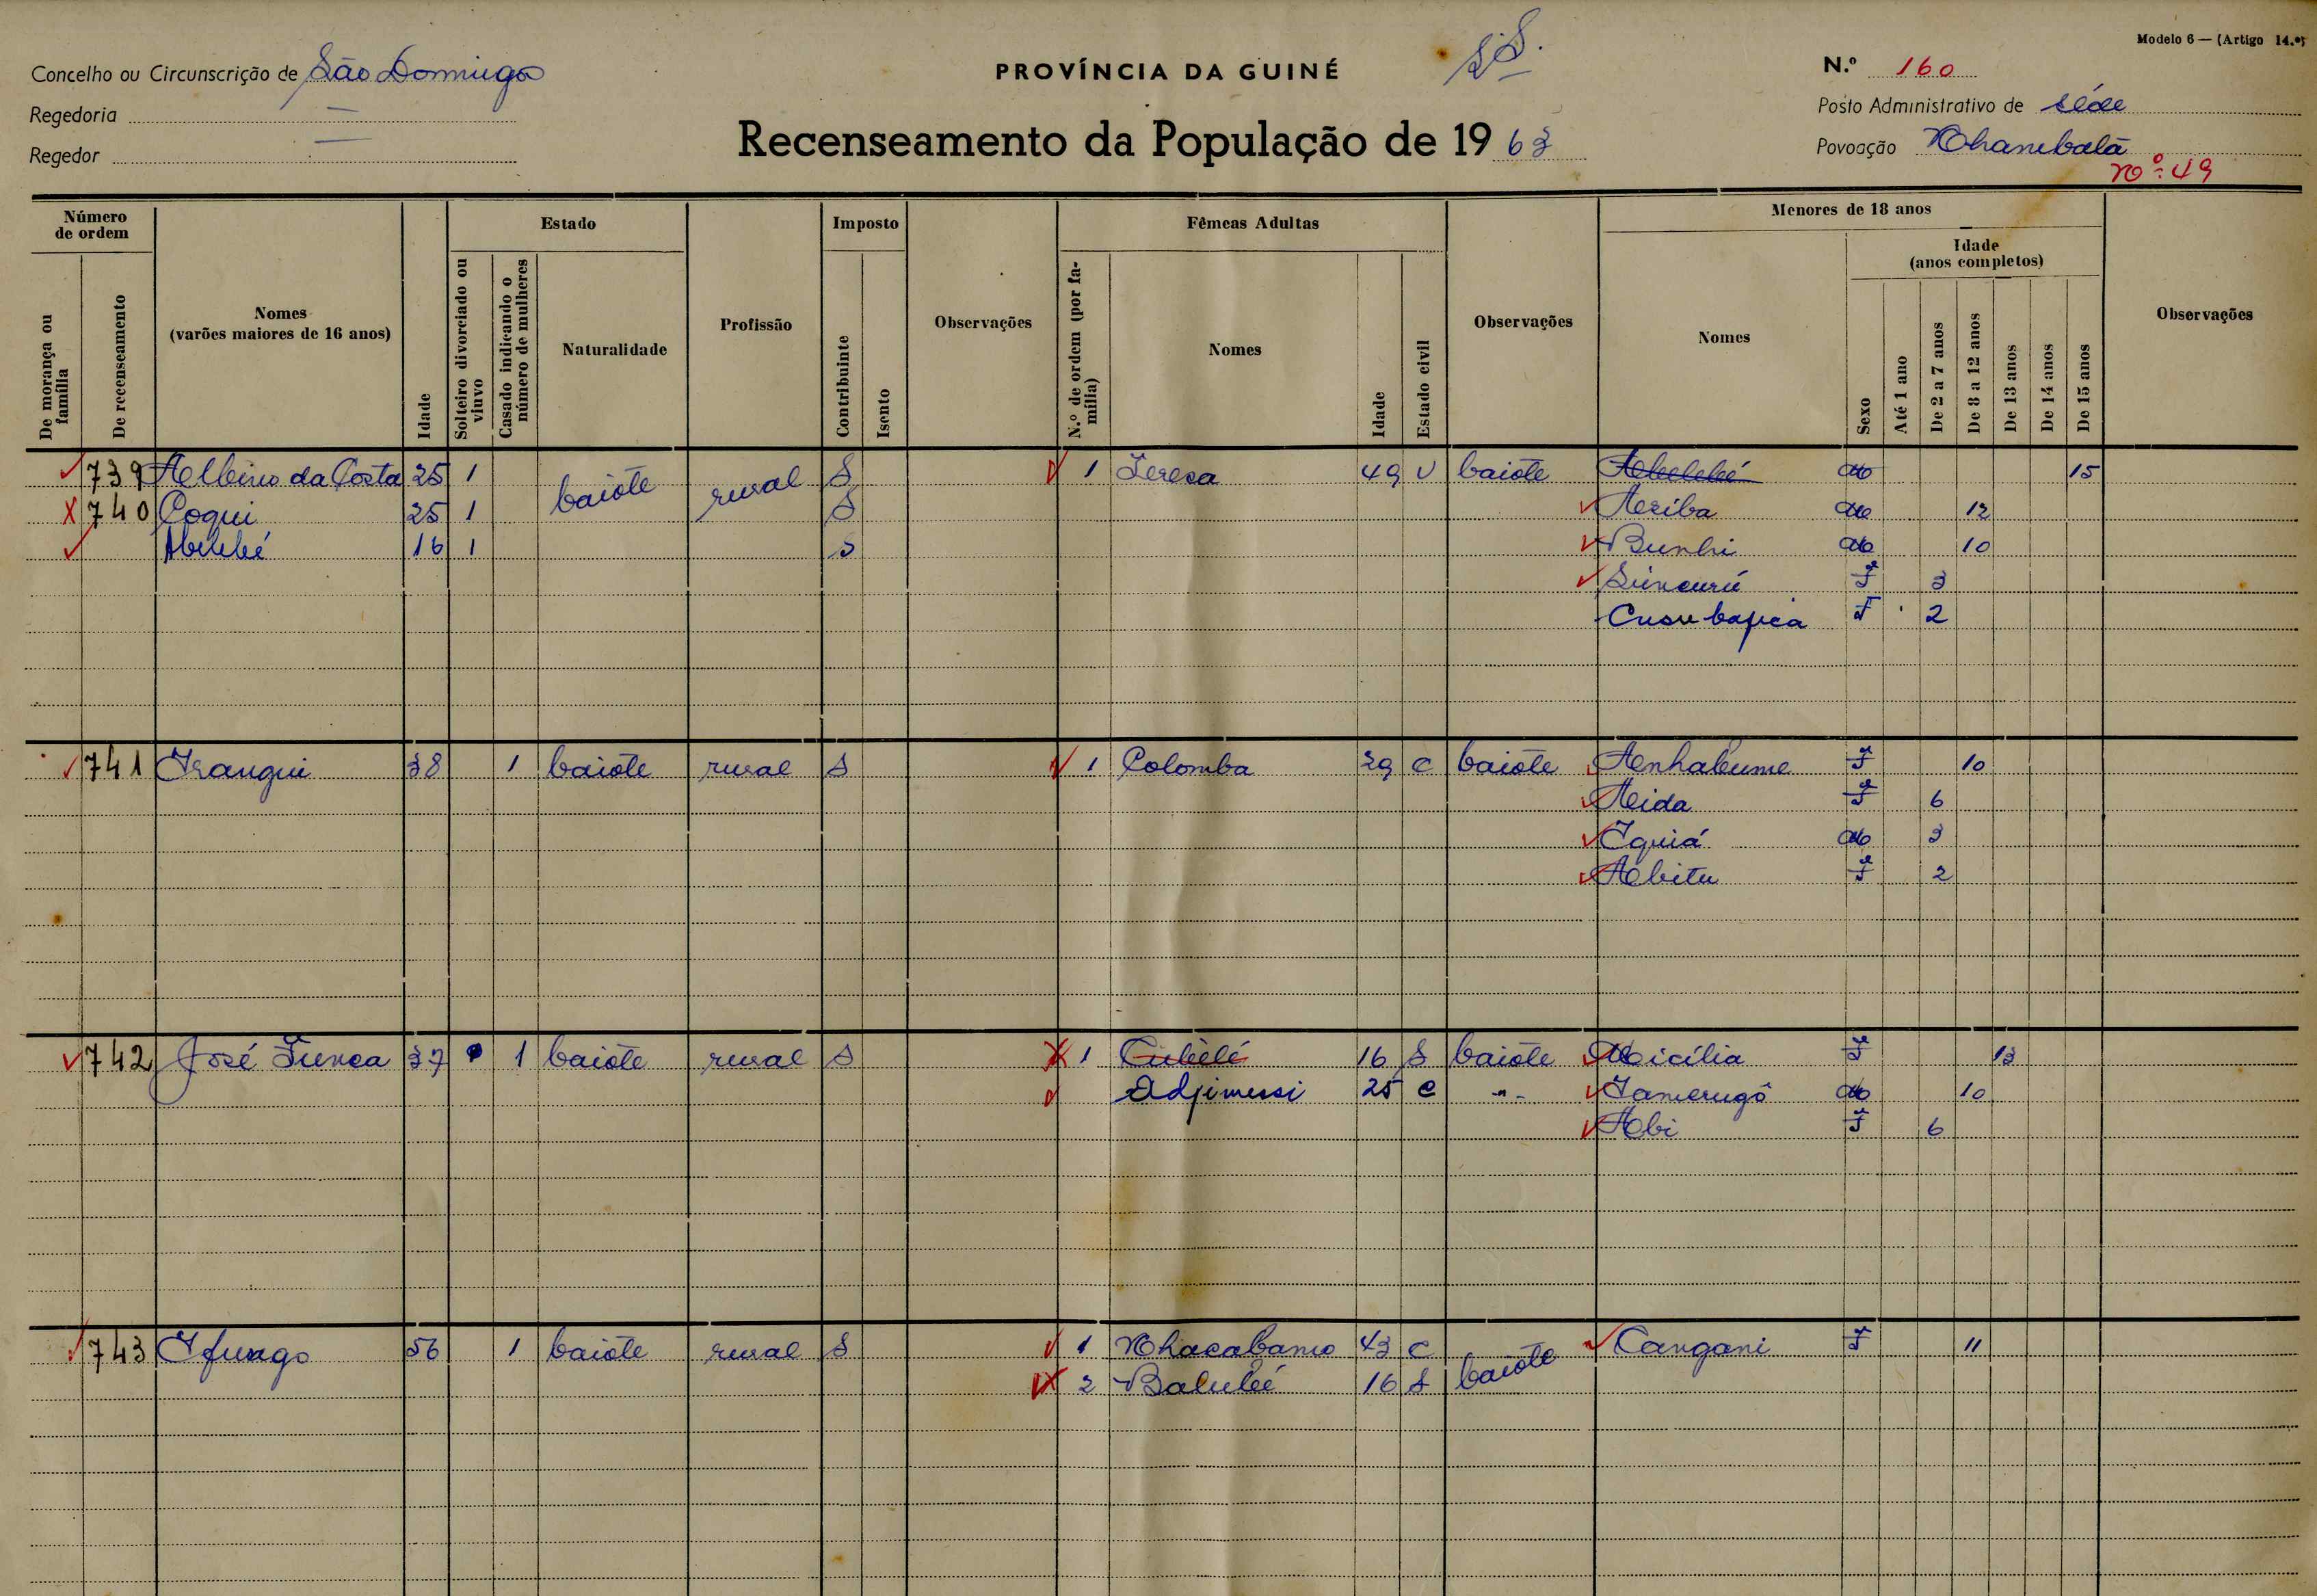 Modelo 6 — (Artigo 14.º)
Concelho ou Circunscrição de São Domingo
PROVÍNCIA DA GUINÉ
N.º 160
Regedoria —
Posto Administrativo de séde
Regedor —
Recenseamento da População de 1963
Povoação Nhambalã
nº 49
Número de ordem
De morança ou família
De recenseamento
Nomes (varões maiores de 16 anos)
Idade
Estado
Solteiro divorciado ou viuvo
Casado indicando o número de mulheres
Naturalidade
Profissão
Imposto
Contribuinte
Isento
Observações
Fêmeas Adultas
N.º de ordem (por família)
Nomes
Idade
Estado civil
Observações
Menores de 18 anos
Nomes
Sexo
Idade (anos completos)
Até 1 ano
De 2 a 7 anos
De 8 a 12 anos
De 13 anos
De 14 anos
De 15 anos
Observações
739 Albino da Costa 25 1 baiote rural S 1 Teresa 49 V baiote 15
740 Coqui 25 1 S Ariba 12
Abelebé 16 1 S Bunhi 10
Sincurú F 3
F 2
741 Irangui 38 1 baiote rural S 1 Colomba 29 C baiote Anhabume F 10
Aida F 6
Iquiá 3
Abitu F 2
742 José Funca 37 1 baiote rural S 1 Cubelé 16 S baiote F 13
Adjimussi 25 C -"- 10
Abi F 6
743 Ifungo 56 1 baiote rural S 1 Nhacabamo 43 C baiote Cangani F 11
2 Balubé 16 S